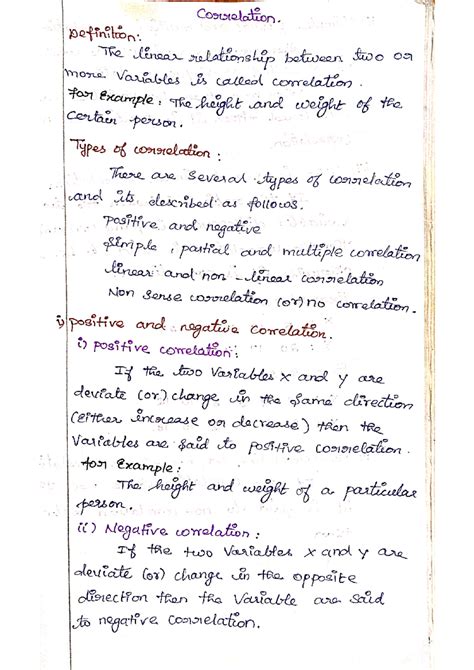 Correlation.
Definition:
The linear relationship between two or
more variables is called correlation.
For Example: The height and weight of the
certain person.
Types of correlation:
There are several types of correlation
and its described as follows.
positive and negative
simple, partial and multiple correlation
linear and non-linear correlation
Non sense correlation (or) no correlation.
i) positive and negative correlation.
i) positive correlation:
If the two variables x and y are
deviate (or) change in the same direction
(either increase or decrease) then the
variables are said to positive correlation.
for Example:
The height and weight of a particular
person.
ii) Negative correlation:
If the two variables x and y are
deviate (or) change in the opposite
direction then the variable are said
to negative correlation.